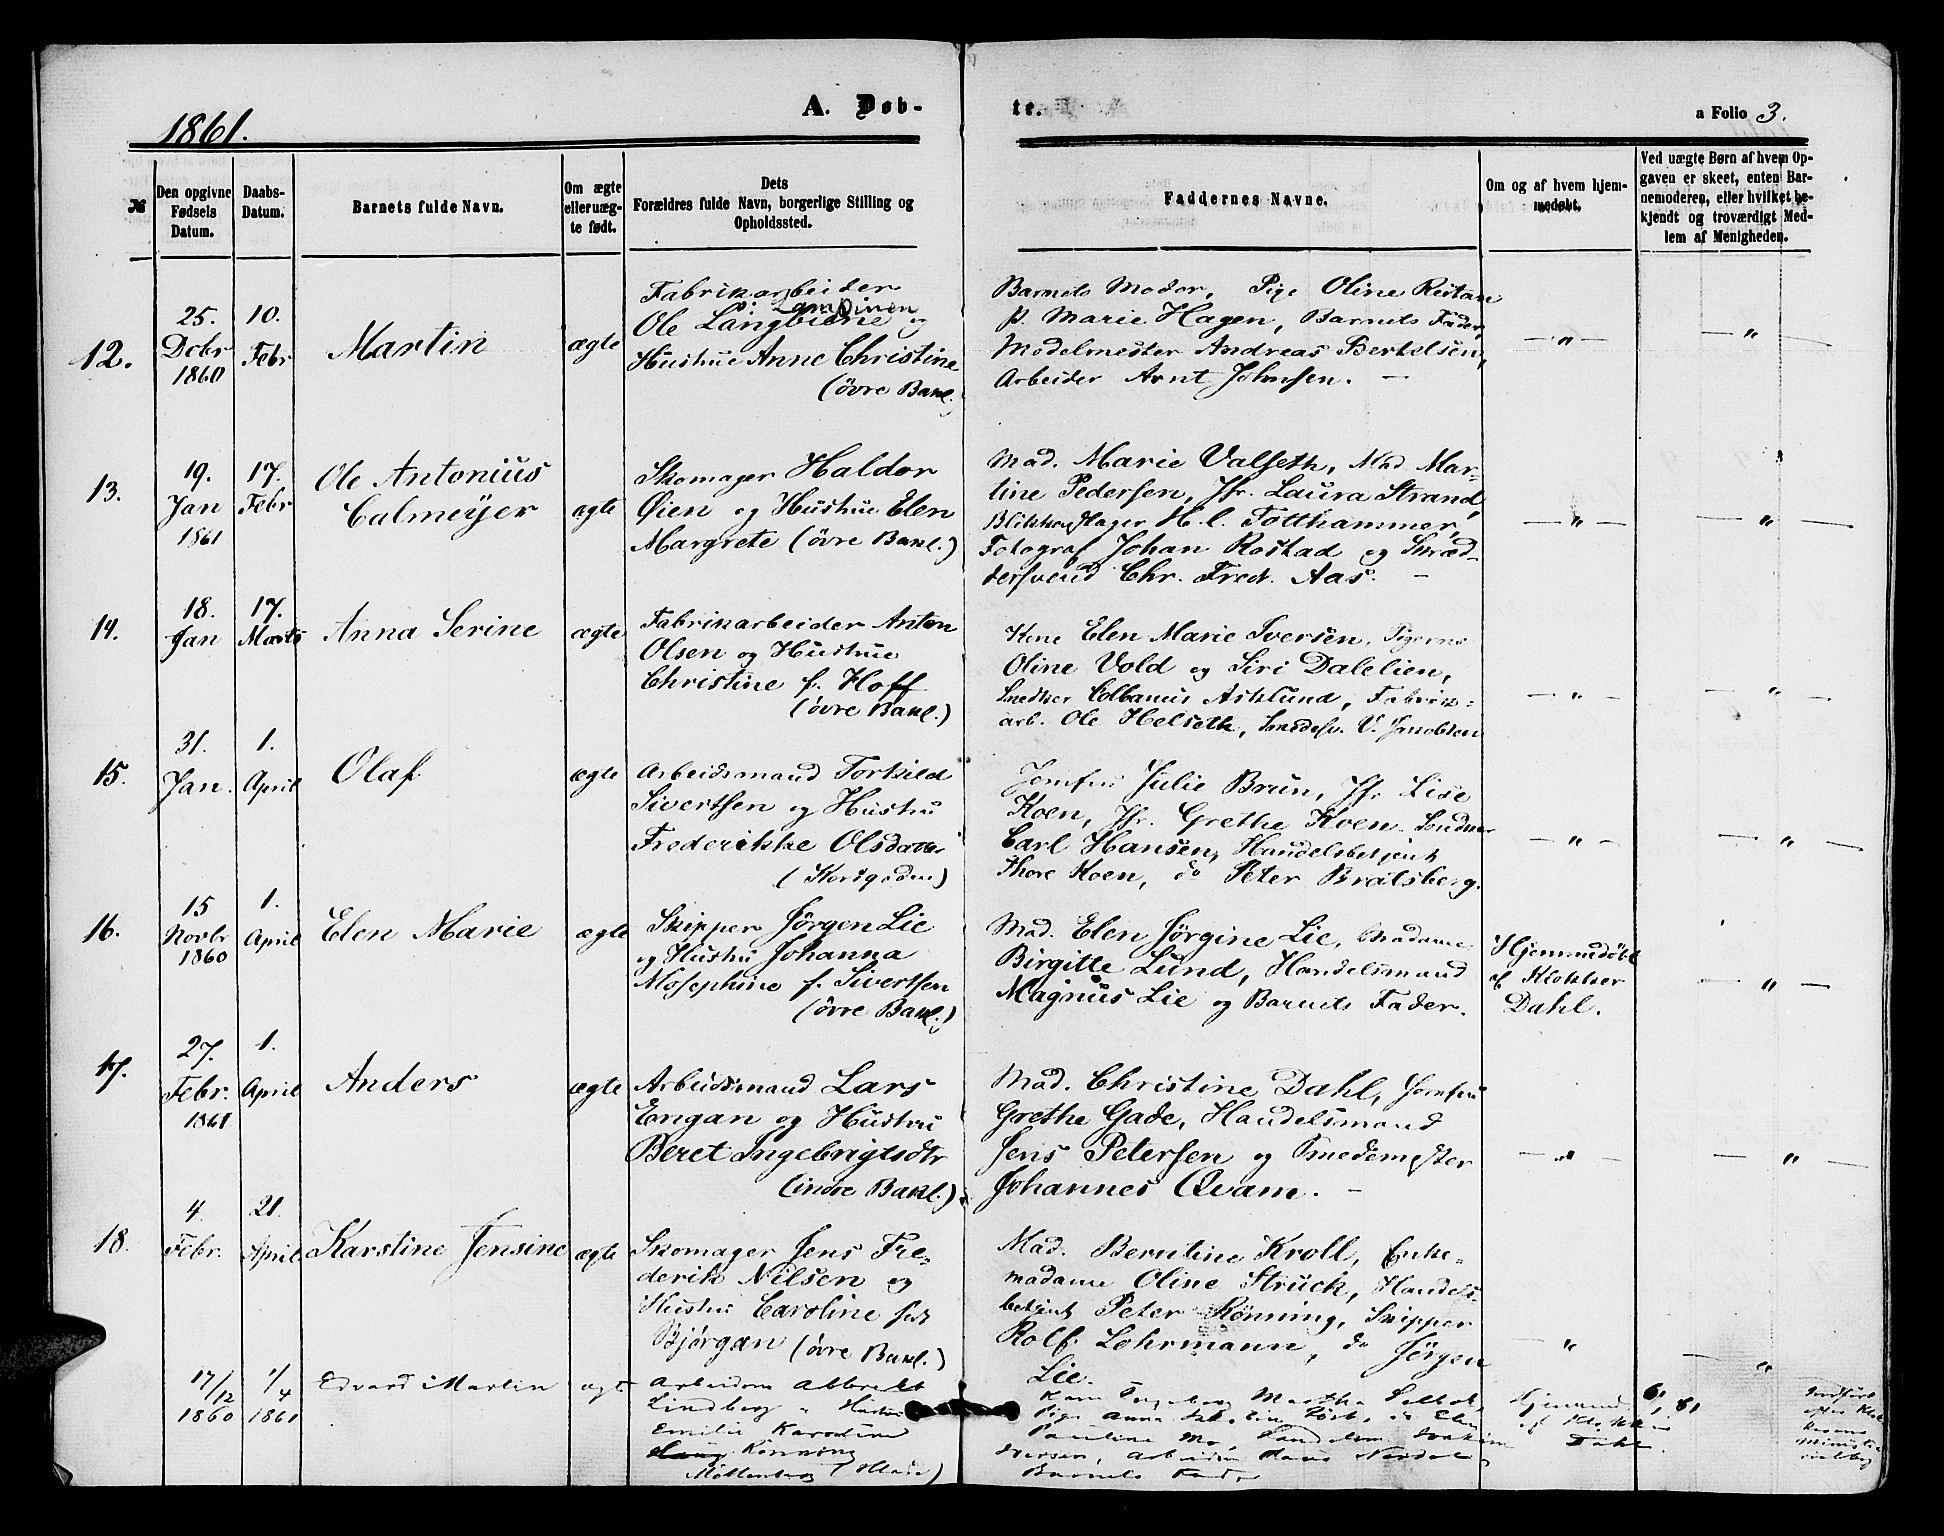 1861.
A. Døb-
te.
a Folio 3.
№
Den opgivne Fødsels Datum.
Daabs-Datum.
Barnets fulde Navn.
Om ægte eller uægte født.
Dets
Forældres fulde Navn, borgerlige Stilling og
Opholdssted.
Faddernes Navne.
Om og af hvem hjem-
medøbt.
Ved uægte Børn af hvem Op-
gaven er skeet, enten Bar-
nemoderen, eller hvilket be-
kjendt og troværdigt Med-
lem af Menigheden.
12.
25.
Dcbr
1860
10.
Febr
Martin
ægte
Fabrikarbeider
Ole Langbiene og
Hustrue Anne Christine
(övre Bakl.)
Barnets Moder, Pige Oline Reitan
p. Marie Hagen, Barnets Fader,
Modelmester Andreas Bertelsen,
Arbeider Arnt Johnsen. —
— " —
— " —
13.
19.
Jan
1861
17.
Febr
Ole Antonius
Calmeyer
ægte
Skomager Haldor
Øien og Hustrue Elen
Margrete (övre Bakl.)
Mad. Marie Valseth, Mad Mar-
tine Pedersen, Jfr. Laura Strand,
Blikkenslager H. C. Totthammer,
Fotograf Johan Rostad og Skræd-
dersvend Chr. Fred. Aas. —
— " —
— " —
14.
18.
Jan
17.
Marts
Anna Serine
ægte
Fabrikarbeider Anton
Olsen og Hustrue
Christine f. Hoff
(övre Bakl.)
Kone Elen Marie Iversen, Pigerne
Oline Vold og Siri Dalelien,
Snedker Colbanus Asklund, Fabrik-
arb. Ole Helseth, Smedesv. V. Jacobsen
— " —
— " —
15.
31.
Jan.
1.
April
Olaf
ægte
Arbeidsmand Torkild
Sivertsen og Hustru
Frederikke Olsdatter
(Kortgaden)
Jomfru Julie Brun, Jfr Lise
Koen, Jfr. Grethe Koen. Snedker
Carl Hansen, Handelsbetjent
Thore Koen, do Peter Bratsberg.
— " —
— " —
16.
15
Novbr
1860
1.
April
Elen Marie
ægte
Skipper Jörgen Lie
og Hustru Johanna
Mosephine f. Sivertsen
(övre Bakl.)
Mad. Elen Jörgine Lie, Madame
Birgitte Lund, Handelsmand
Magnus Lie og Barnets Fader.
Hjemmedöbt
af Klokker
Dahl.
— " —
17.
27.
Febr.
1861
1.
April
Anders
ægte
Arbeidsmand Lars
Engan og Hustru
Beret Ingebrigtsdtr
(indre Bakl.)
Mad. Christine Dahl, Jomfru
Grethe Gade, Handelsmand
Jens Petersen og Smedemester
Johannes Qvam. —
— " —
— " —
18.
4.
Febr.
21.
April
Karstine Jensine
ægte
Skomager Jens Fre-
derik Nilsen og
Hustru Caroline født
Bjørgan (övre Bakl.)
Mad. Berntine Kroll, Enke-
madame Oline Struck, Handels-
betjent Peter Rönning, Skipper
Rolf Lohrmann, do Jörgen
Lie.
— "
— "
17/12
1860
1/4
1861
Edvard Martin
ægt
Arbeidsm Albrekt
Lindberg
Emilie Karoline
Rönning
Möllenberg
Martha Selbek,
Pige Anna
Pauline Mo,
Iversen, Arbeidsm Hans
Barnets Fader
Hjemmed
af Klokker
Dahl.